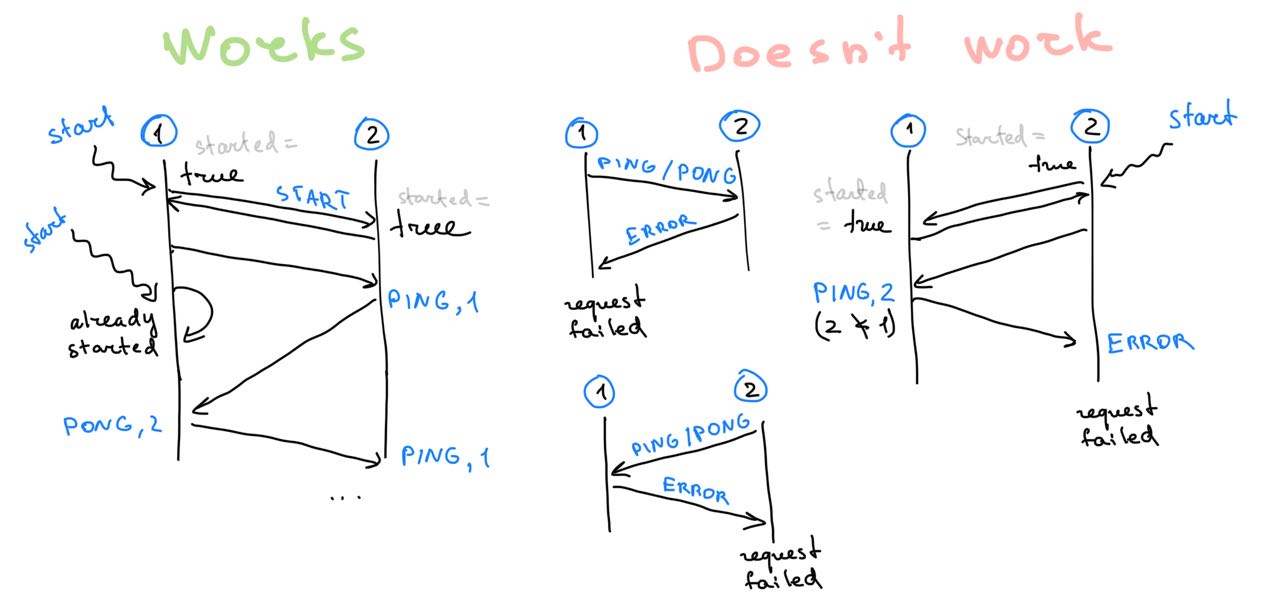 Works
start
1
started =
2
true
START
started =
true
start
PING, 1
already
started
PONG, 2
PING, 1
...
Doesn't work
1
2
PING / PONG
ERROR
request
failed
1
2
PING / PONG
ERROR
request
failed
1
started =
2
start
true
started
= true
PING, 2
(2 ≮ 1)
ERROR
request
failed